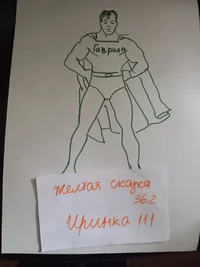 Гаврила
Желтая скарка
36.2
Иринка 111